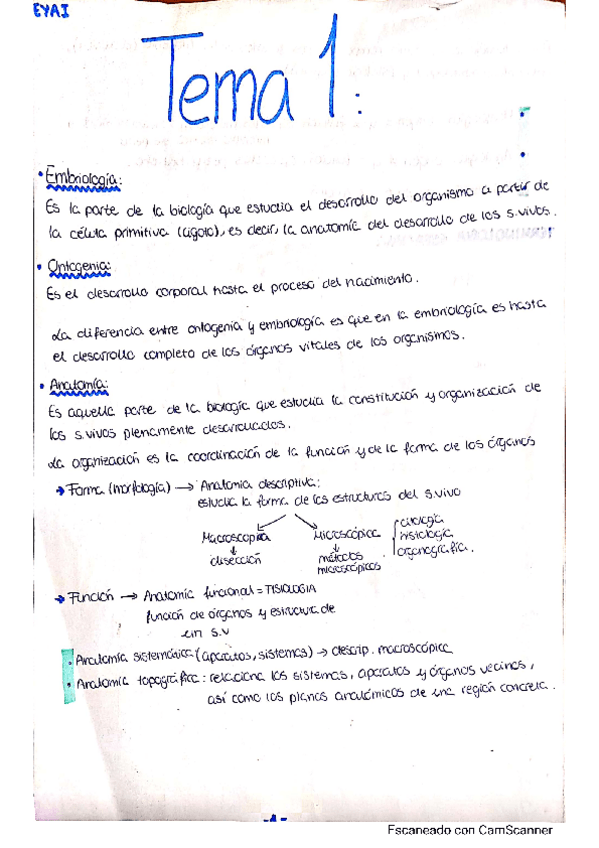 EYAI
Tema 1:
• Embriología:
Es la parte de la biología que estudia el desarrollo del organismo a partir de
la célula primitiva (cigoto), es decir, la anatomía del desarrollo de los s.vivos.
• Ontogenia:
Es el desarrollo corporal hasta el proceso del nacimiento.
La diferencia entre ontogenia y embriología es que en la embriología es hasta
el desarrollo completo de los órganos vitales de los organismos.
• Anatomía:
Es aquella parte de la biología que estudia la constitución y organización de
los s.vivos plenamente desarrollados.
La organización es la coordinación de la función y de la forma de los órganos
→ Forma (morfología) → Anatomía descriptiva:
estudia la forma de las estructuras del s.vivo
Macroscópica Microscópica citología
histología
disección métodos organografía.
microscópicos
→ Función → Anatomía funcional = FISIOLOGIA
función de órganos y estructura de
un s.v
• Anatomía sistemática (aparatos, sistemas) → descrip. macroscópica
• Anatomía topográfica: relaciona los sistemas, aparatos y órganos vecinos,
así como los planos anatómicos de una región concreta.
-1-
Escaneado con CamScanner